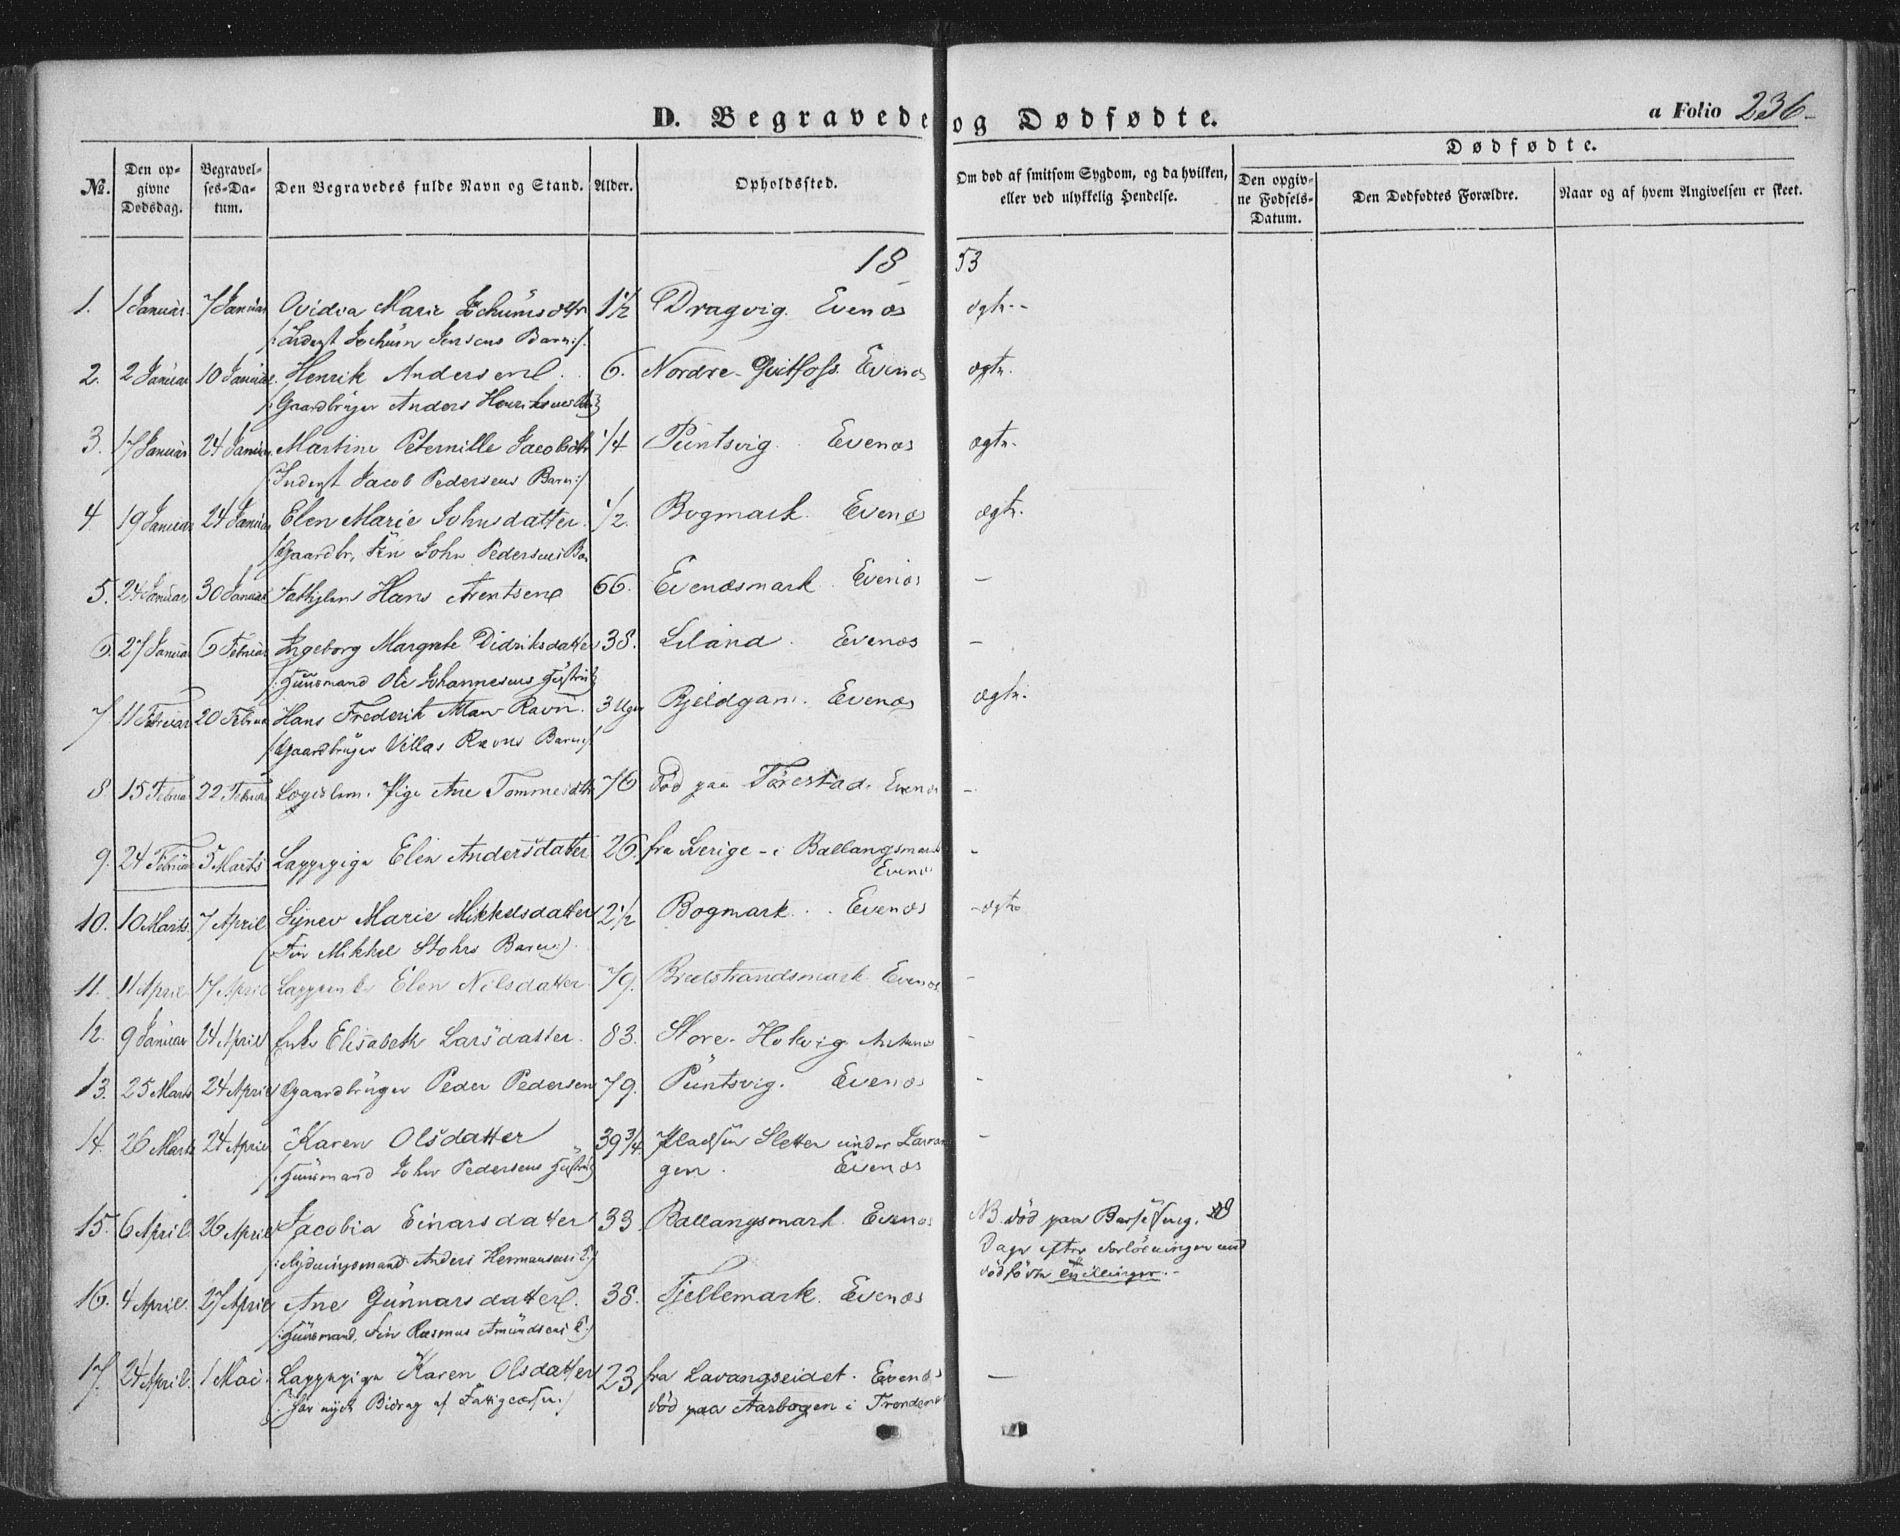 D. Begravede og Dødfødte.
a Folio 236
Dødfødte.
No.
Den opgivne Dødsdag.
Begravelses-Datum.
Den Begravedes fulde Navn og Stand.
Alder.
Opholdssted.
Om død af smitsom Sygdom, og da hvilken, eller ved ulykkelig Hendelse.
Den opgivne Fødsels-Datum.
Den Dødfødtes Forældre.
Naar og af hvem Angivelsen er skeet.
1853
1. 1 Januar 7 Januar Ovidia Marie Jochumsdtr 1½ Dragvig Evenæs ægte
/: Inderst Jochum Jensens Barn :/
2. 2 Januar 10 Januar Henrik Andersen 6. Nordre Evenæs ægte.
/: Gaardbruger Anders Henriksens
3. 17 Januar 24 Januar Martine Peternille Jacobsdtr 1/4 Puntsvig Evenæs ægte.
/: Inderst Jacob Pedersens Barn :/
4. 19 Januar 24 Januar Elen Marie Johnsdatter 1/2. Bogmark Evenæs ægte.
/: Gaardbr. Fin John Pedersens Ba
5. 24 Januar 30 Januar Fattiglem Hans Arentsen 66. Evenæsmark Evenæs –
6. 27 Januar 6 Februar Ingeborg Margrete Didriksdatter 38. Liland Evenæs –
/: Huusmand Ole Johannesens Hustru
7 11 Februar 20 Februar Hans Frederik Ravn 3 Uger Bjeldgam Evenæs ægte.
/: Gaardbruger Villas Ravns Barn :/
8 15 Februar 22 Februar Logislem. Pige Ane Tommesdtr 76 Død paa Tårestad. Evenæs –
9. 24 Februar 5 Marts Lappepige Elen Andersdatter 26. fra Sverige – i Ballangsmark –
Evenæs
10. 10 Marts 7 April Synev Marie Mikkelsdatter 2½ Bogmark Evenæs ægte
(Fin Mikkel Barn:)
11. 11 April 17 April Elen Nilsdatter 79. Bredstrandsmark Evenæs –
12. 9 Januar 24 April Enke Elisabeth Larsdatter 83. Store Holvig –
13. 25 Marts 24 April Gaardbruger Peder Pedersen 79. Puntsvig. Evenæs –
14. 26 Marts 24 April Karen Olsdatter 39 3/4 Pladsen Sletten under –
/: Huusmand John Pedersens Hustru gen. Evenæs
15. 6 April 26 April Jacobia Einarsdatter 33 Ballangsmark. Evenæs NB død paa Barselseng. 8
/: Rydningsmand Anders Hermansens H:/ Dage efter Forløsningen med
dødfødte Tvillinger. –
16. 4 April. 27 April Ane Gunnarsdatter. 38. Fjellemark. Evenæs
/: Huusmand, Fin Rasmus Amundsens H:/
17. 24 April. 1 Mai Lappepige Karen Olsdatter 23 fra Lavangseidet. Evenæs –
/: har nydt Bidrag af Fattigcassen :/ død paa Aarbogen i Trondenæs